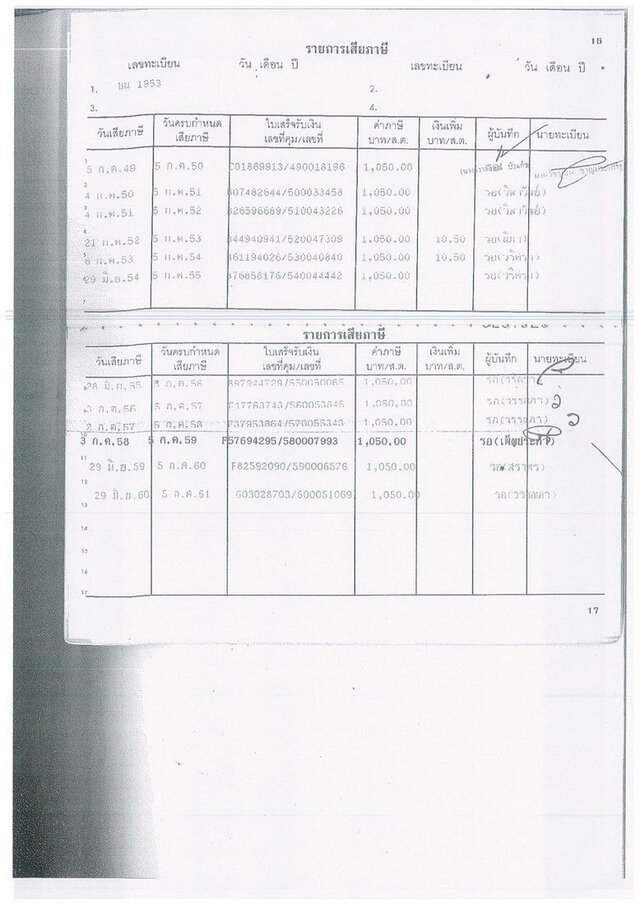 16
รายการเสียภาษี
เลขทะเบียน วัน เดือน ปี เลขทะเบียน วัน เดือน ปี
1. บม 1953 2.
3. 4.
วันเสียภาษี วันครบกำหนดเสียภาษี ใบเสร็จรับเงิน เลขที่คุม/เลขที่ ค่าภาษี บาท/ส.ต. เงินเพิ่ม บาท/ส.ต. ผู้บันทึก นายทะเบียน
1 5 ก.ค.49 5 ก.ค.50 C01869913/490018196 1,050.00
4 ก.ค.50 5 ก.ค.51 607482644/500033458 1,050.00 รอ(
4 ก.ค.51 5 ก.ค.52 826596689/510043226 1,050.00 รอ(
21 ก.ค.52 5 ก.ค.53 844940941/520047309 1,050.00 10.50 รอ(
6 ก.ค.53 5 ก.ค.54 861194026/530040840 1,050.00 10.50 รอ(
29 มิ.ย.54 5 ก.ค.55 876858176/540044442 1,050.00 รอ(
7
รายการเสียภาษี
วันเสียภาษี วันครบกำหนดเสียภาษี ใบเสร็จรับเงิน เลขที่คุม/เลขที่ ค่าภาษี บาท/ส.ต. เงินเพิ่ม บาท/ส.ต. ผู้บันทึก นายทะเบียน
28 มิ.ย.55 5 ก.ค.56 897944729/550050065 1,050.00
3 ก.ค.56 5 ก.ค.57 F17763743/560053845 1,050.00 รอ(วรรณภา)
2 ก.ค.57 5 ก.ค.58 F37953864/570055343 1,050.00 รอ(วรรณภา)
10 3 ก.ค.58 5 ก.ค.59 F57694295/580007993 1,050.00 รอ(
11 29 มิ.ย.59 5 ก.ค.60 F82592090/590006576 1,050.00
12 29 มิ.ย.60 5 ก.ค.61 G03028703/600051069 1,050.00 รอ(วรรณภา)
13
14
15
16
17
17